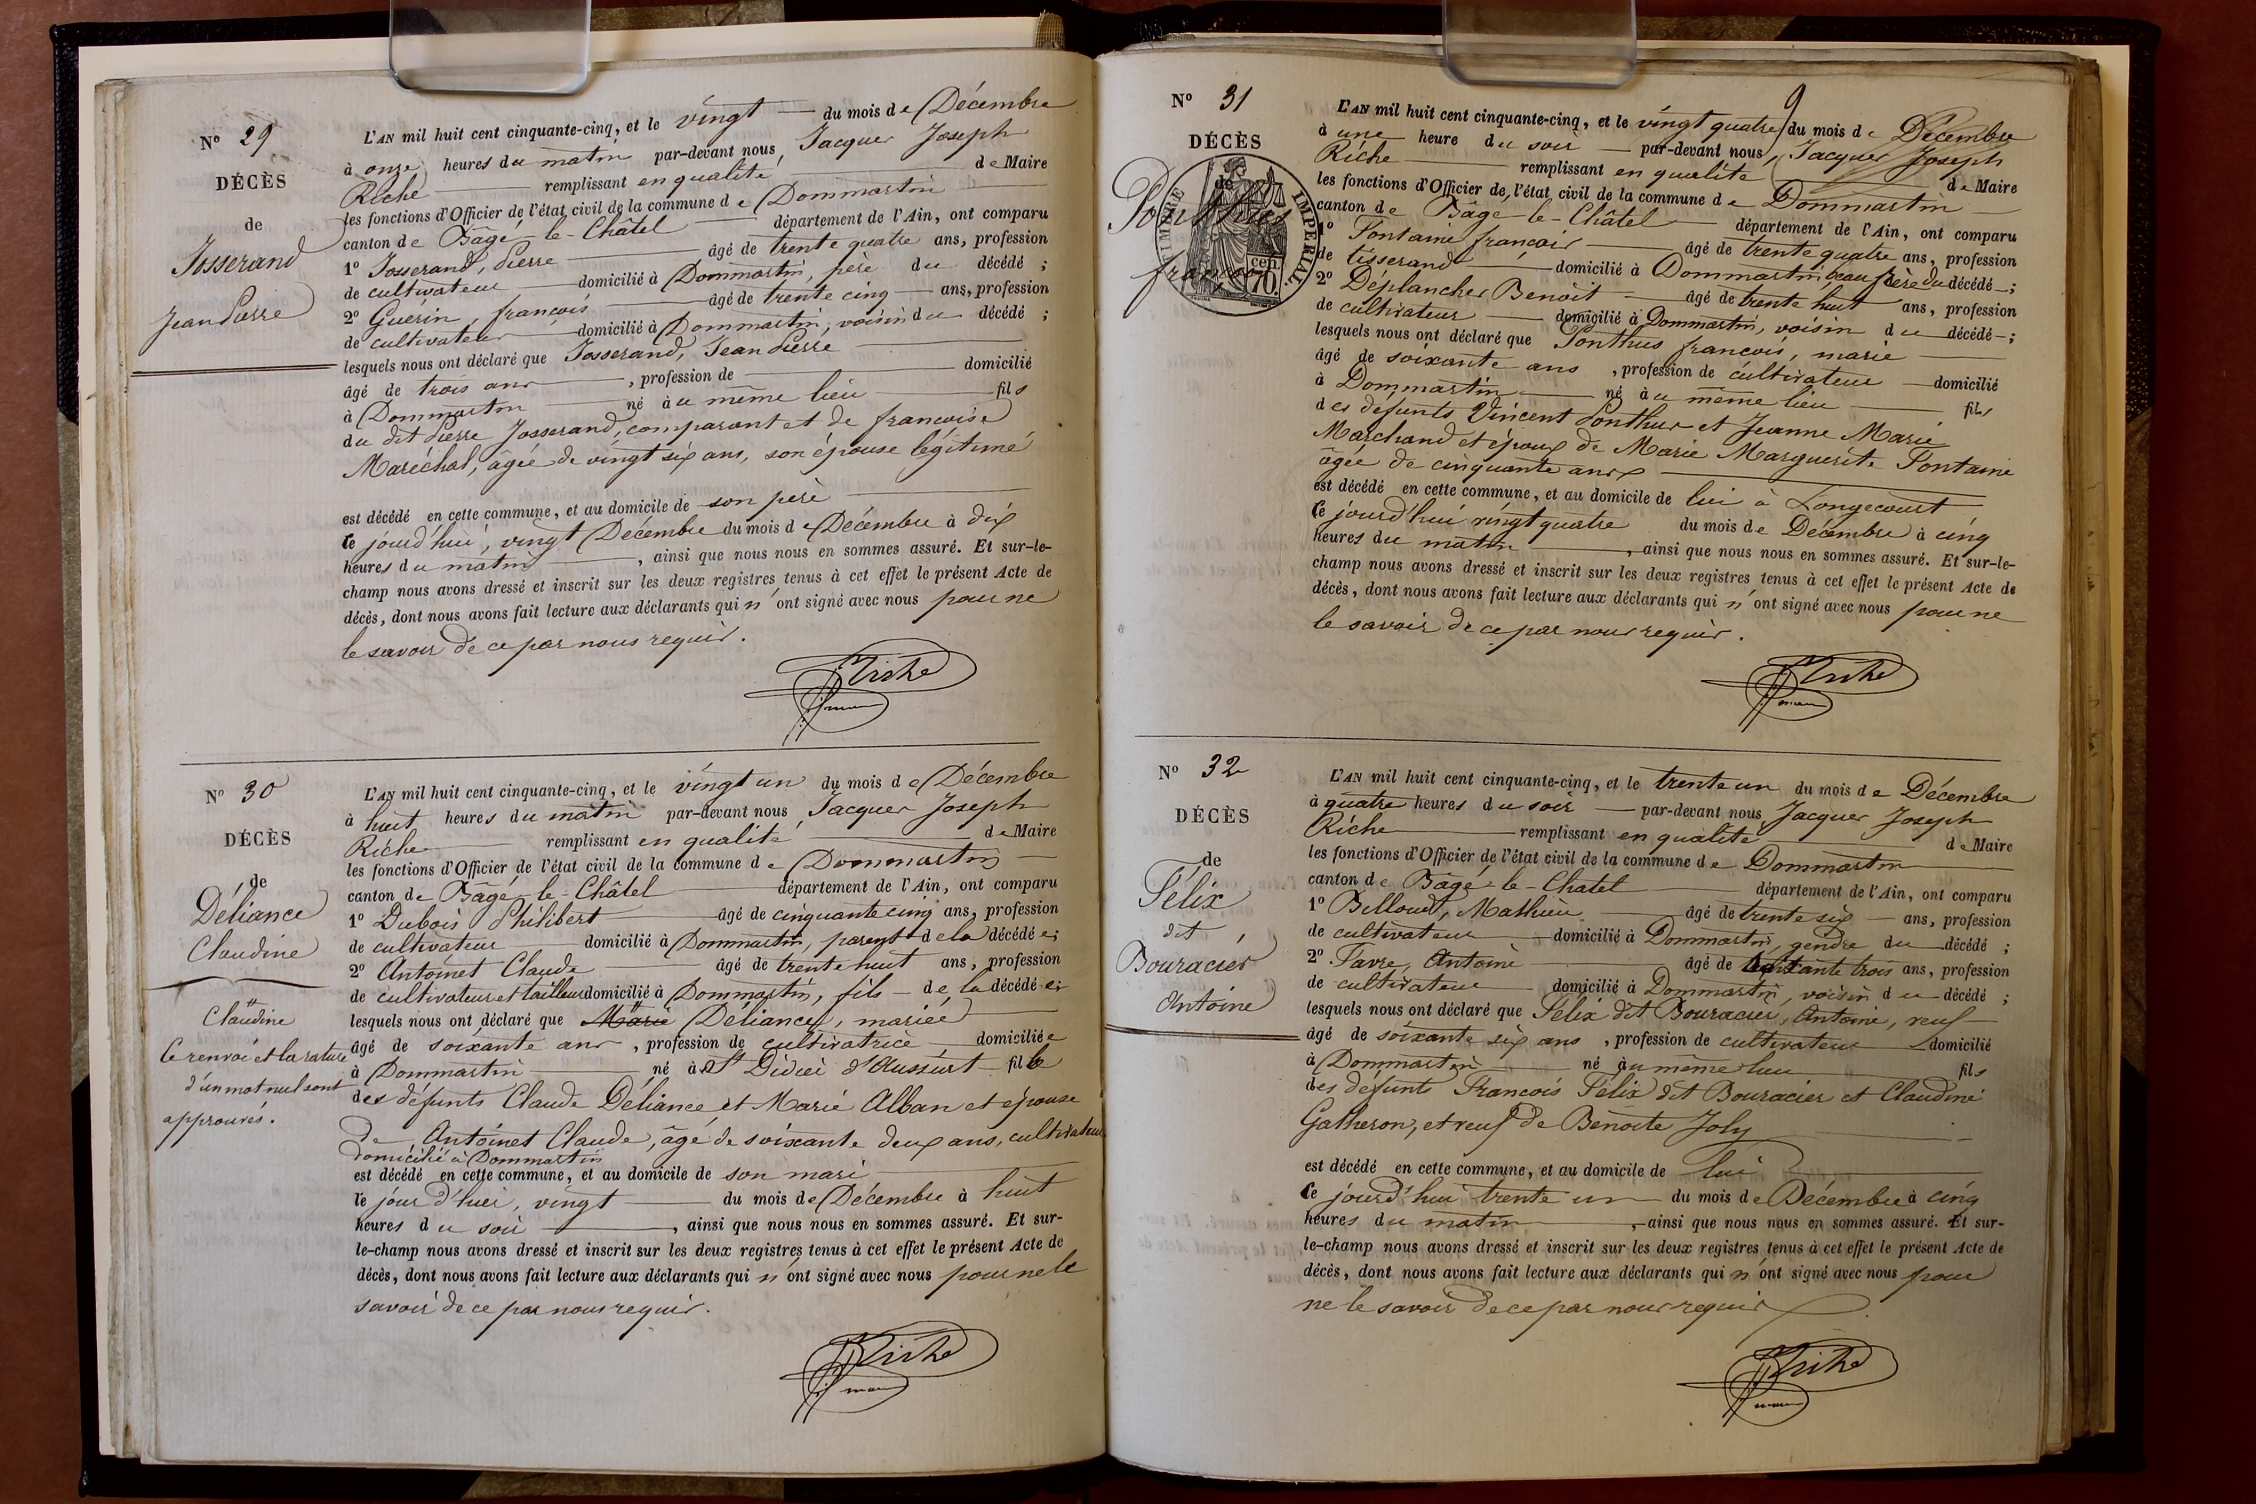 N° 29
DÉCÈS
de
Josserand
Jean Pierre
L'AN mil huit cent cinquante-cinq, et le vingt du mois de Décembre
à onze heures du matin par-devant nous Jacques Joseph
Riche remplissant en qualité de Maire
les fonctions d'Officier de l'état civil de la commune de Dommartin
canton de Bâgé-le-Châtel département de l'Ain, ont comparu
1° Josserand, Pierre âgé de trente quatre ans, profession
de cultivateur domicilié à Dommartin, père du décédé ;
2° Guérin, françois âgé de trente cinq ans, profession
de cultivateur domicilié à Dommartin, voisin du décédé ;
lesquels nous ont déclaré que Josserand, Jean Pierre
âgé de trois ans, profession de domicilié
à Dommartin né au même lieu fils
du dit Pierre Josserand, comparant et de françoise
Maréchal, âgée de vingt six ans, son épouse légitime
est décédé en cette commune, et au domicile de son père
ce jourd'hui, vingt Décembre du mois de Décembre à dix
heures du matin, ainsi que nous nous en sommes assuré. Et sur-le-
champ nous avons dressé et inscrit sur les deux registres tenus à cet effet le présent Acte de
décès, dont nous avons fait lecture aux déclarants qui n'ont signé avec nous pour ne
le savoir de ce par nous requis.
Riche
maire
N° 30
DÉCÈS
de
Déliance
Claudine
Claudine
Ce renvoi et la rature
d'un mot nul sont
approuvés.
L'AN mil huit cent cinquante-cinq, et le vingt un du mois de Décembre
à huit heures du matin par-devant nous Jacques Joseph
Riche remplissant en qualité de Maire
les fonctions d'Officier de l'état civil de la commune de Dommartin
canton de Bâgé-le-Châtel département de l'Ain, ont comparu
1° Dubois Philibert âgé de cinquante cinq ans, profession
de cultivateur domicilié à Dommartin, parent de la décédée ;
2° Antoinet Claude âgé de trente huit ans, profession
de cultivateur et tailleur domicilié à Dommartin, fils de la décédée ;
lesquels nous ont déclaré que Marie Déliance, mariée
âgé de soixante ans, profession de cultivatrice domiciliée
à Dommartin né à St Didier d'Aussiat fille
des défunts Claude Déliance et Marie Alban et épouse
de Antoinet Claude, âgé de soixante deux ans, cultivateur
domicilié à Dommartin
est décédé en cette commune, et au domicile de son mari
le jour d'hier, vingt du mois de Décembre à huit
heures du soir, ainsi que nous nous en sommes assuré. Et sur-
le-champ nous avons dressé et inscrit sur les deux registres tenus à cet effet le présent Acte de
décès, dont nous avons fait lecture aux déclarants qui n'ont signé avec nous pour ne le
savoir de ce par nous requis.
Riche
maire
9
N° 31
DÉCÈS
de
Ponthus
françois
TIMBRE IMPERIAL
70 cen.
L'AN mil huit cent cinquante-cinq, et le vingt quatre du mois de Décembre
à une heure du soir par-devant nous, Jacques Joseph
Riche remplissant en qualité de Maire
les fonctions d'Officier de l'état civil de la commune de Dommartin
canton de Bâgé-le-Châtel département de l'Ain, ont comparu
1° Fontaine françois âgé de trente quatre ans, profession
de tisserand domicilié à Dommartin, beau frère du décédé ;
2° Déplanches Benoit âgé de trente huit ans, profession
de cultivateur domicilié à Dommartin, voisin du décédé ;
lesquels nous ont déclaré que Ponthus françois, marié
âgé de soixante ans, profession de cultivateur domicilié
à Dommartin né au même lieu fils
des défunts Vincent Ponthus et Jeanne Marie
Marchand et époux de Marie Marguerite Fontaine
âgée de cinquante ans
est décédé en cette commune, et au domicile de lui à Longecourt
ce jourd'hui vingt quatre du mois de Décembre à cinq
heures du matin, ainsi que nous nous en sommes assuré. Et sur-le-
champ nous avons dressé et inscrit sur les deux registres tenus à cet effet le présent Acte de
décès, dont nous avons fait lecture aux déclarants qui n'ont signé avec nous pour ne
le savoir de ce par nous requis.
Riche
maire
N° 32
DÉCÈS
de
Félix
dit
Bouracier
Antoine
L'AN mil huit cent cinquante-cinq, et le trente un du mois de Décembre
à quatre heures du soir par-devant nous Jacques Joseph
Riche remplissant en qualité de Maire
les fonctions d'Officier de l'état civil de la commune de Dommartin
canton de Bâgé-le-Chatel département de l'Ain, ont comparu
1° Billoud, Mathieu âgé de trente six ans, profession
de cultivateur domicilié à Dommartin, gendre du décédé ;
2° Favre, Antoine âgé de trois ans, profession
de cultivateur domicilié à Dommartin, voisin du décédé ;
lesquels nous ont déclaré que Félix dit Bouracier, Antoine, veuf
âgé de soixante six ans, profession de cultivateur domicilié
à Dommartin né au même lieu fils
des défunts François Félix dit Bouracier et Claudine
Gatheron, et veuf de Benoite Joly
est décédé en cette commune, et au domicile de lui
ce jourd'hui trente un du mois de Décembre à cinq
heures du matin, ainsi que nous nous en sommes assuré. Et sur-
le-champ nous avons dressé et inscrit sur les deux registres tenus à cet effet le présent Acte de
décès, dont nous avons fait lecture aux déclarants qui n'ont signé avec nous pour
ne le savoir de ce par nous requis
Riche
maire